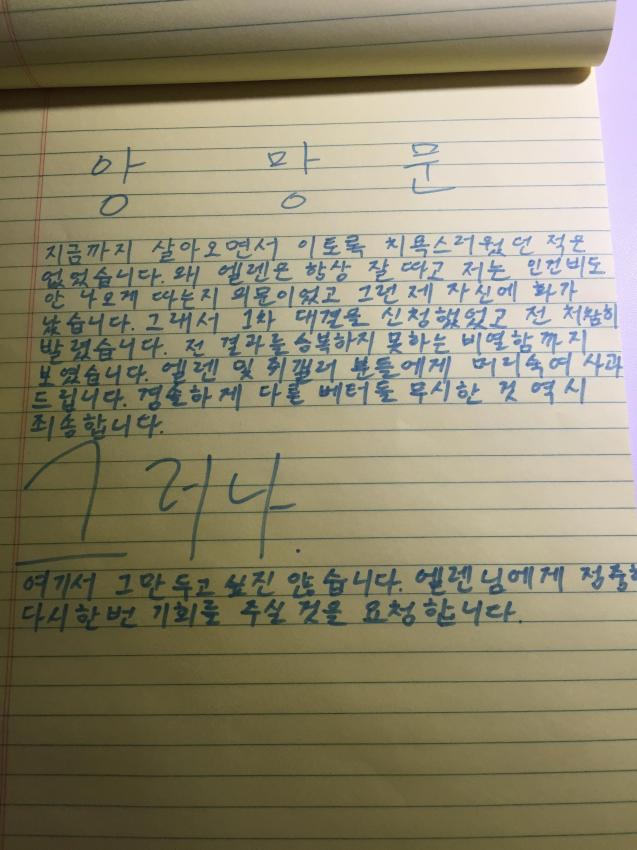 앙 망 문
지금까지 살아오면서 이토록 치욕스러웠던 적은
없었습니다. 왜 엘렌은 항상 잘 따고 저는 인건비도
안 나오게 따는지 의문이었고 그런 제 자신에 화가
났습니다. 그래서 1차 대결을 신청했었고 전 처참히
발렸습니다. 전 결과를 승복하지 못하는 비열함까지
보였습니다. 엘렌 및 취갤러 분들에게 머리숙여 사과
드립니다. 경솔하게 다른 베터들 무시한 것 역시
죄송합니다.
그러나.
여기서 그만두고 싶진 않습니다. 엘렌님에게 정중하
다시한번 기회를 주실 것을 요청합니다.